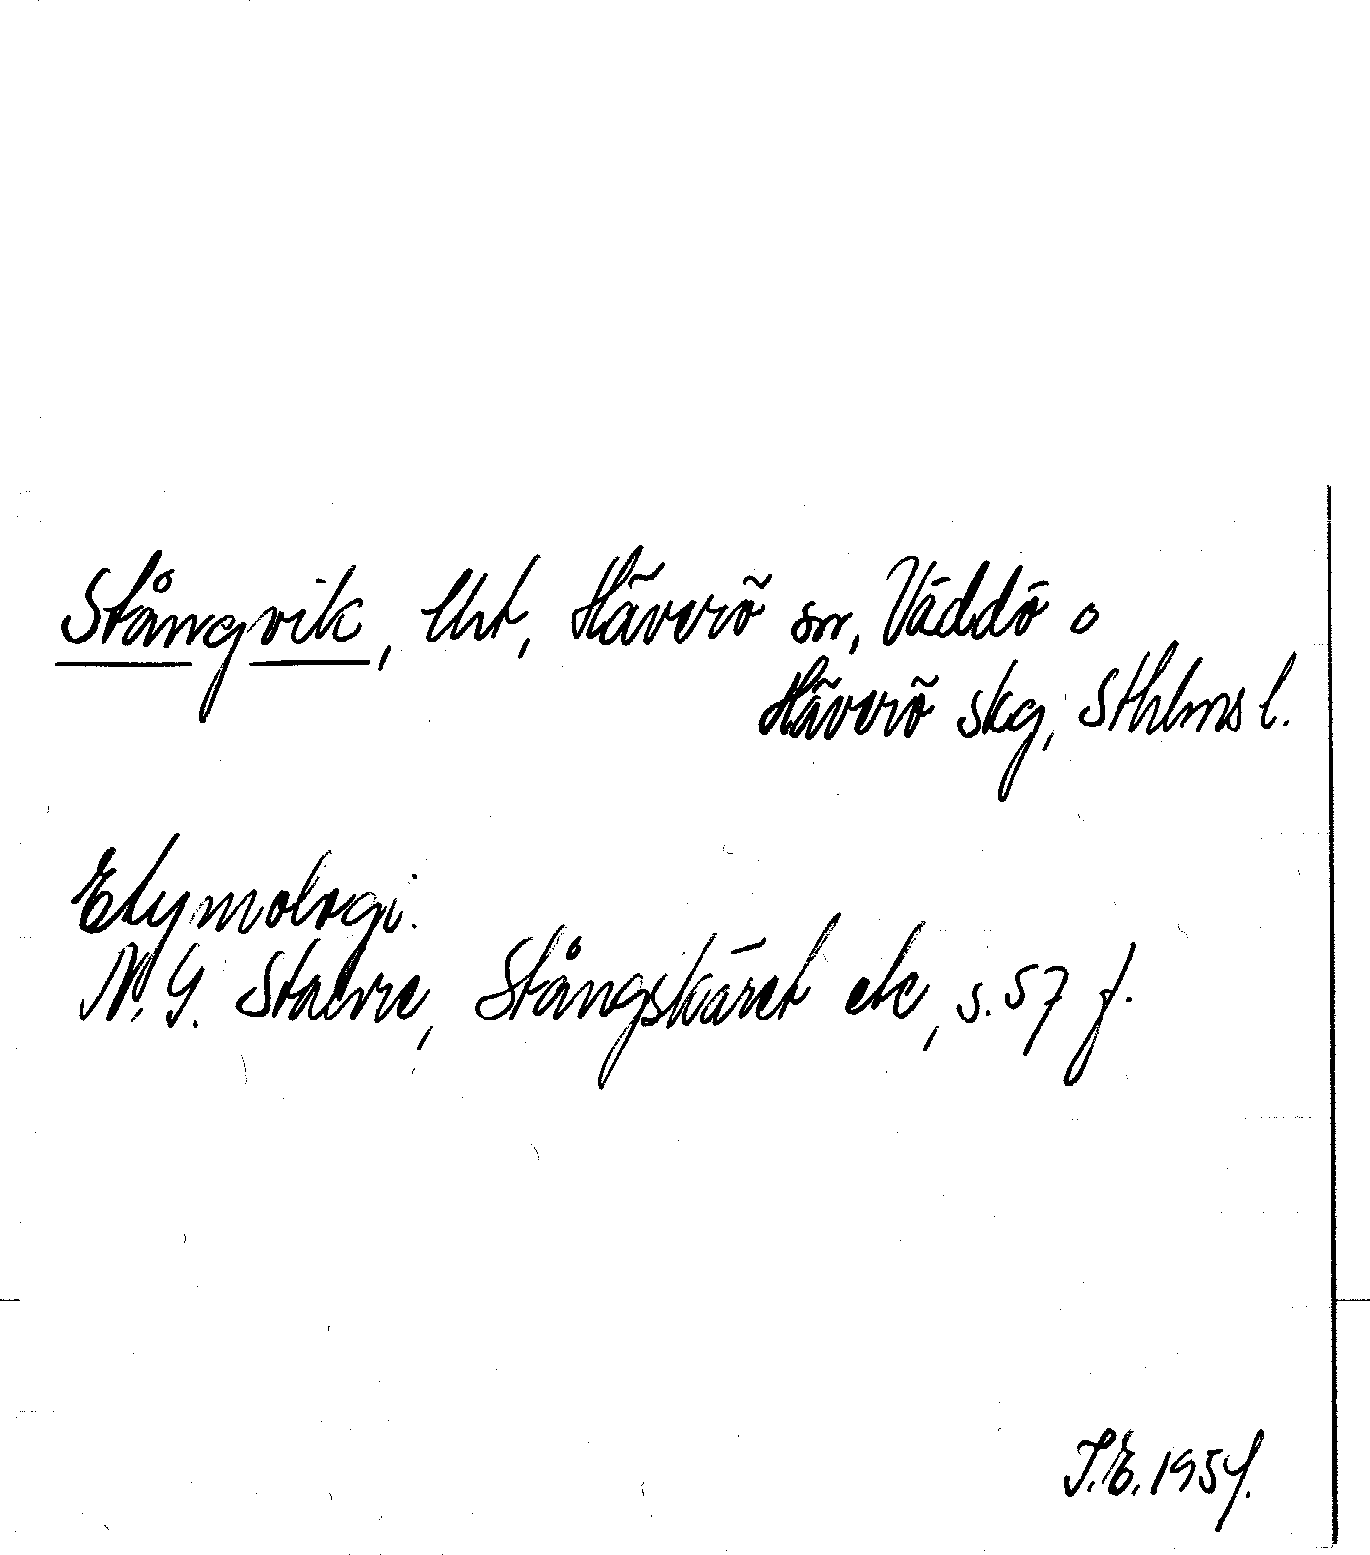 Stångvik, Uht, Häverö sn, Väddö o
Häverö skg, Sthlms l.
Etymologi.
N. G. Stahre, Stångskäret etc, s. 57 f.
I. E. 1954.